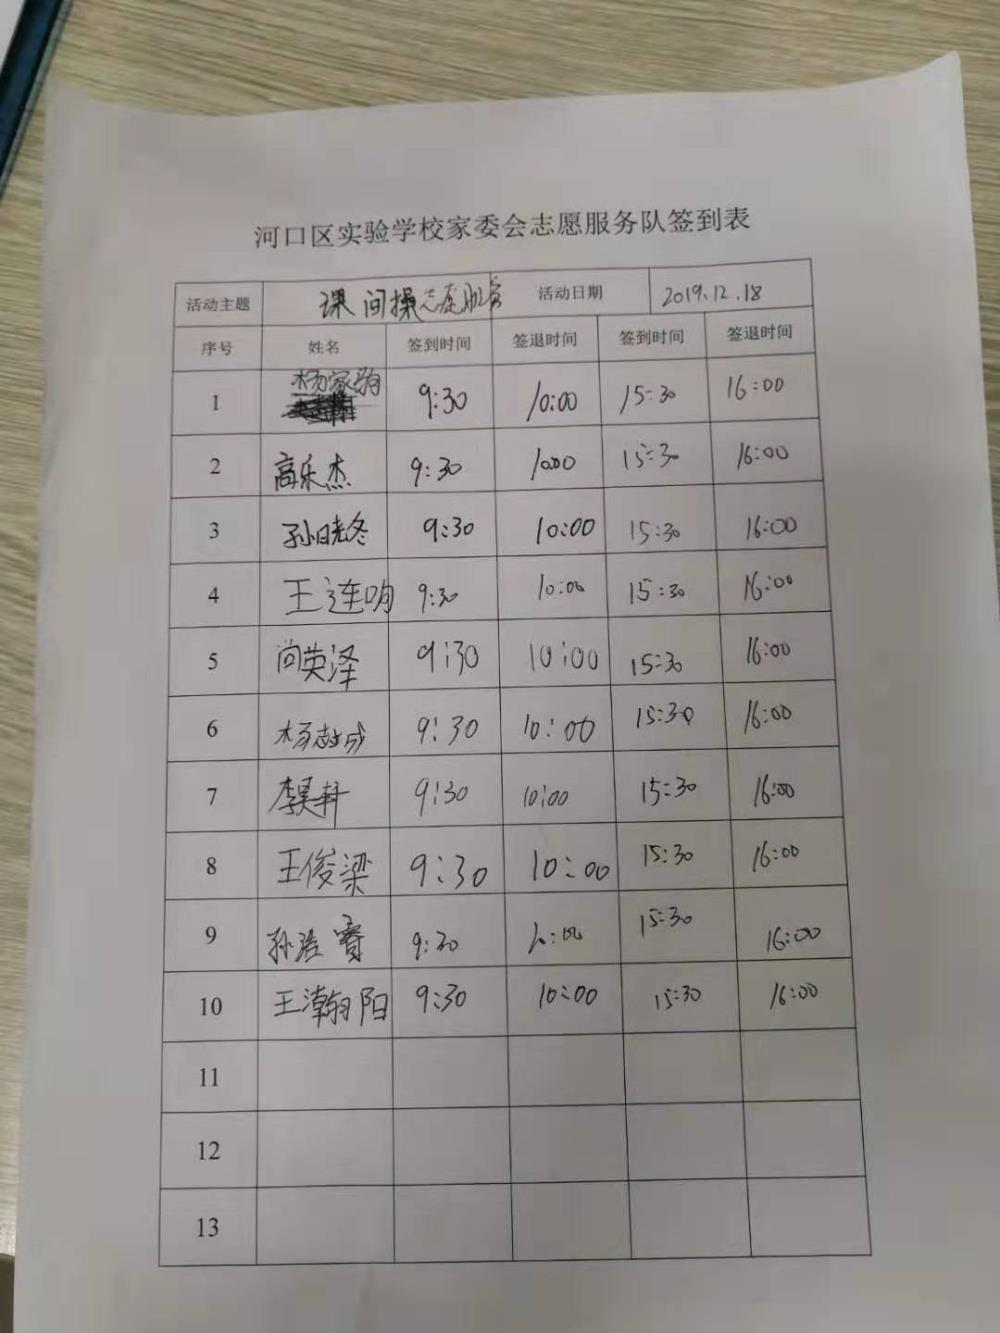 河口区实验学校家委会志愿服务队签到表
活动主题 课间操志愿服务 活动日期 2019.12.18
序号 姓名 签到时间 签退时间 签到时间 签退时间
1 杨家 9:30 10:00 15:30 16:00
2 高乐杰 9:30 10:00 15:30 16:00
3 孙晓冬 9:30 10:00 15:30 16:00
4 王连 9:30 10:00 15:30 16:00
5 尚英泽 9:30 10:00 15:30 16:00
6 杨 成 9:30 10:00 15:30 16:00
7 李昊轩 9:30 10:00 15:30 16:00
8 王俊梁 9:30 10:00 15:30 16:00
9 孙浩 9:30 15:30 16:00
10 王瀚阳 9:30 10:00 15:30 16:00
11
12
13